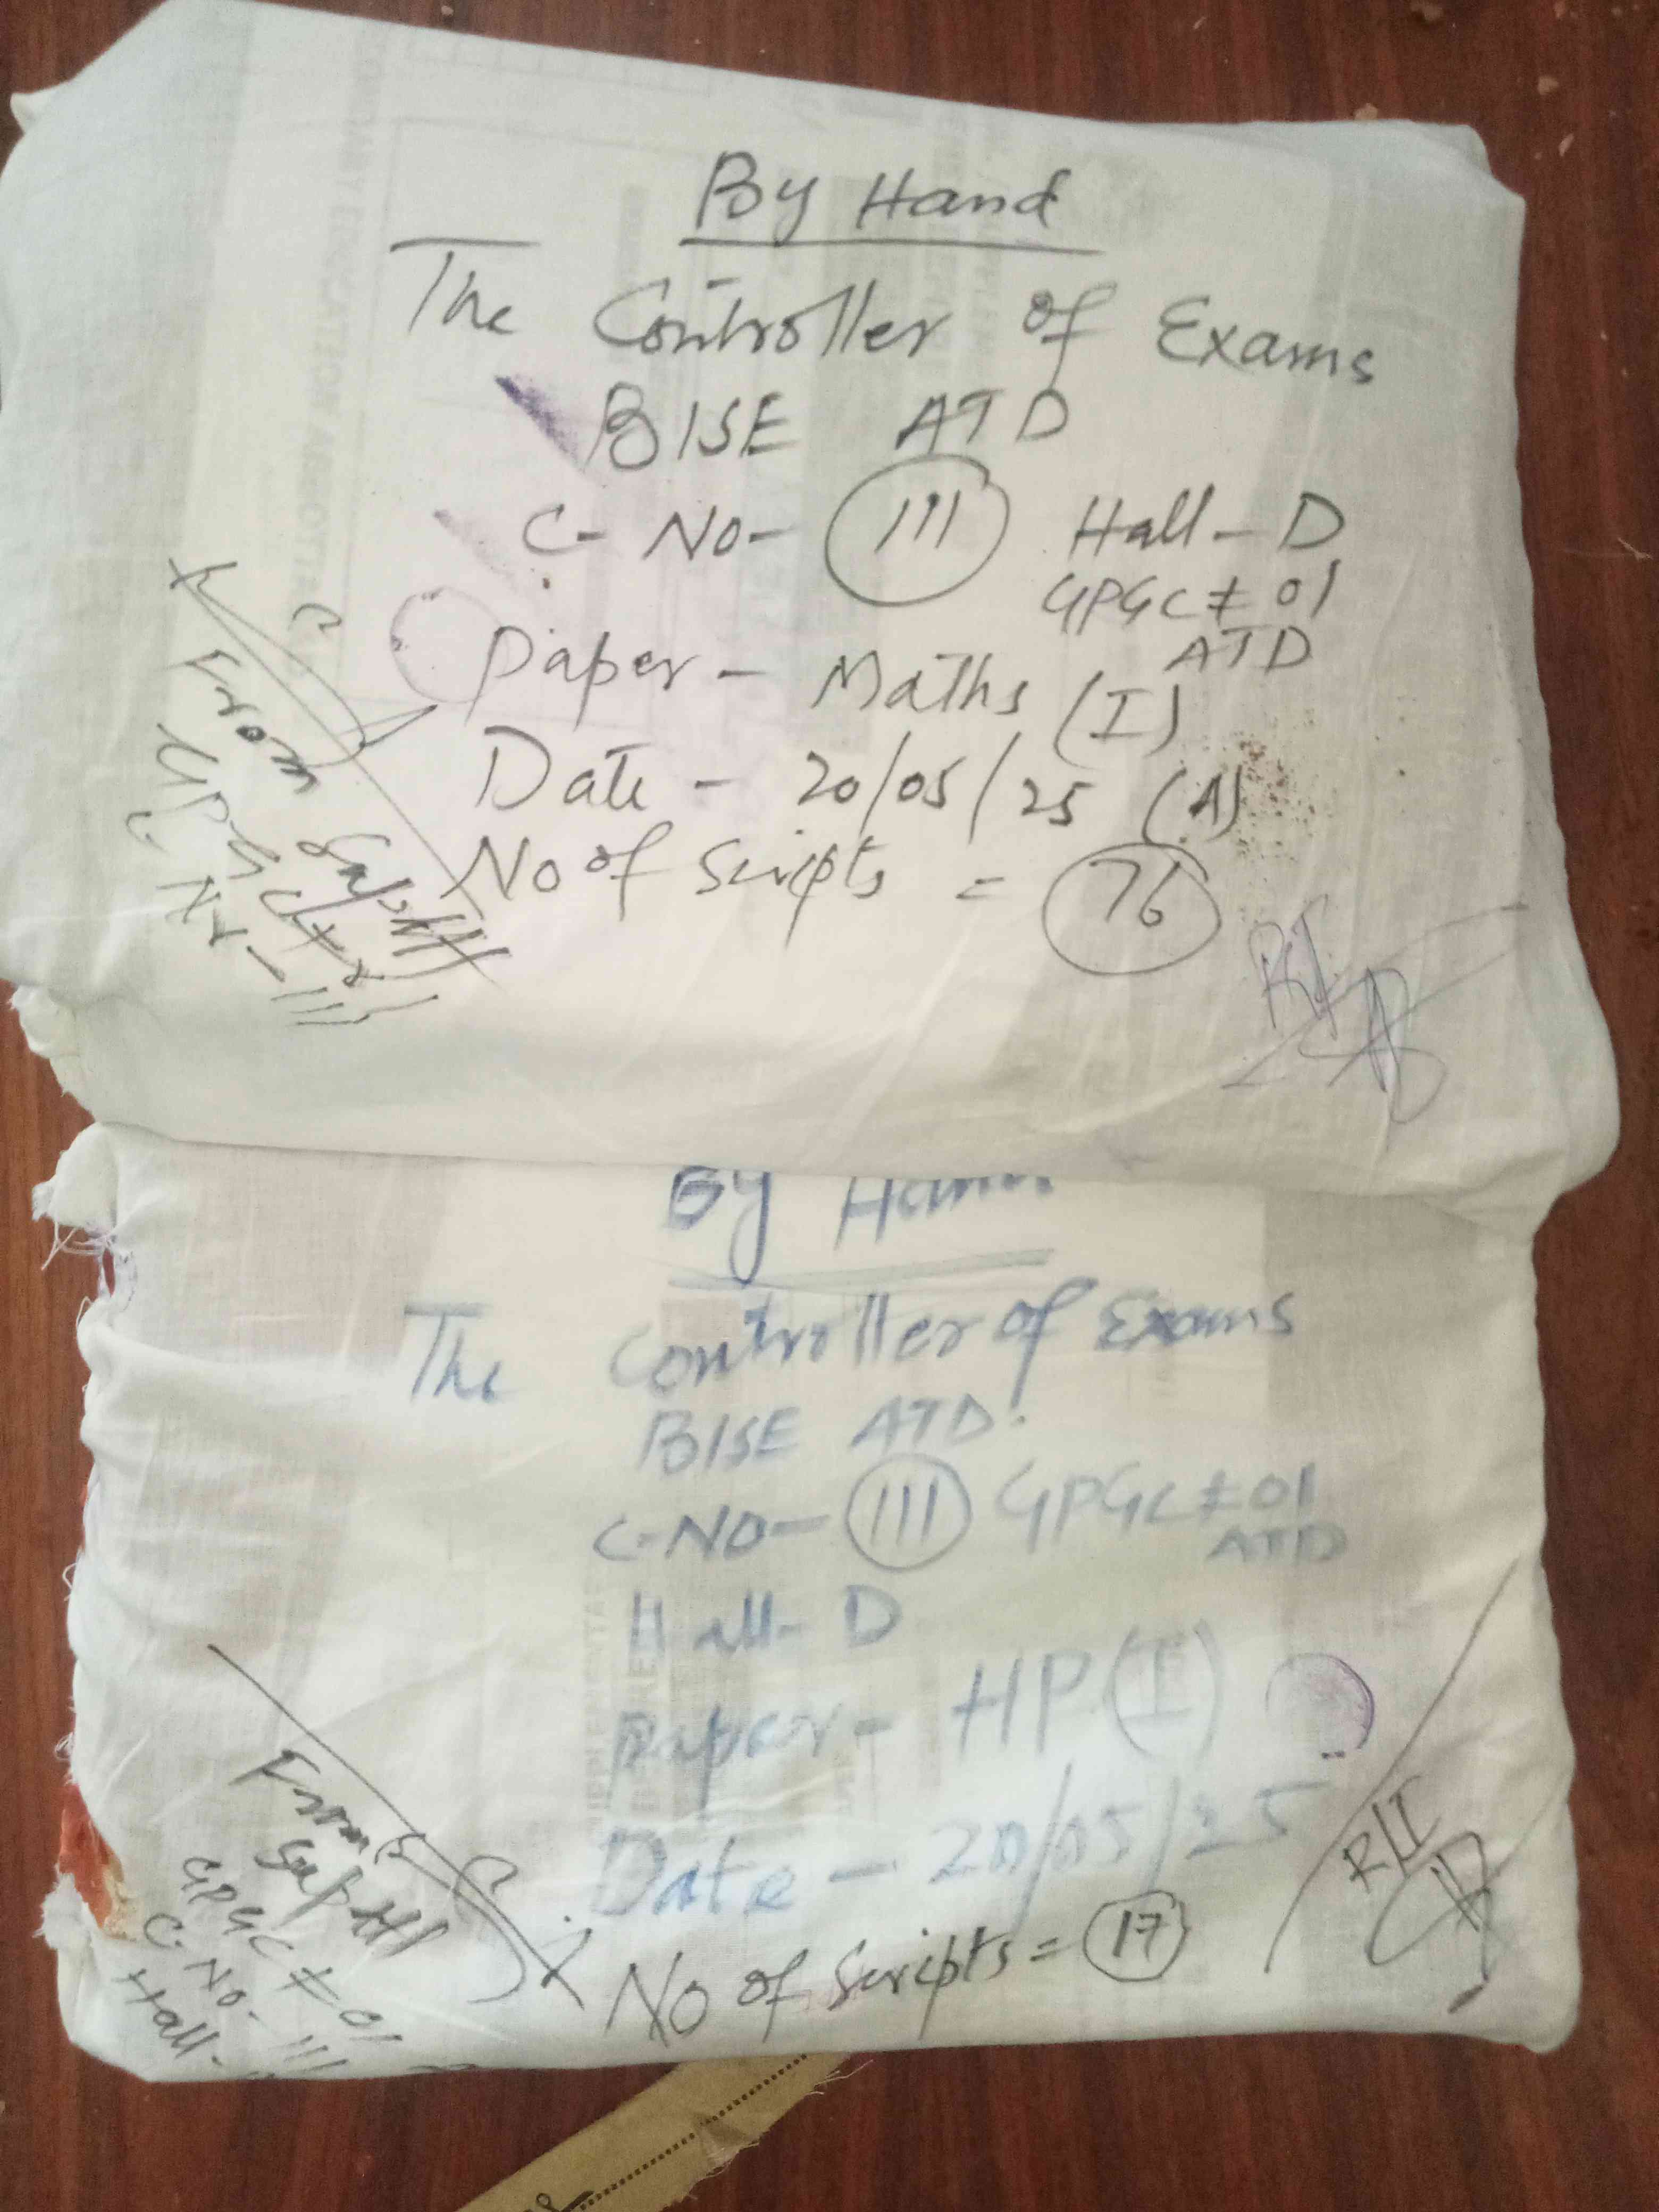 By Hand
The Controller of Exams
BISE ATD
C- No- 111 Hall - D
GPGC # 01
ATD
Paper - Maths (I)
Date - 20/05/25 (A)
No of Scripts = 76
From
Supdtt
GPGC # 1
C. No - 111
R/I
By Hand
The Controller of Exams
BISE ATD.
C-NO- 111 GPGC # 01
ATD
Hall- D
Paper- HP (I)
Date - 20/05/25
No of Scripts = 17
From
Supdtt
GPGC # 01
C. No- 111
Hall-
R/I